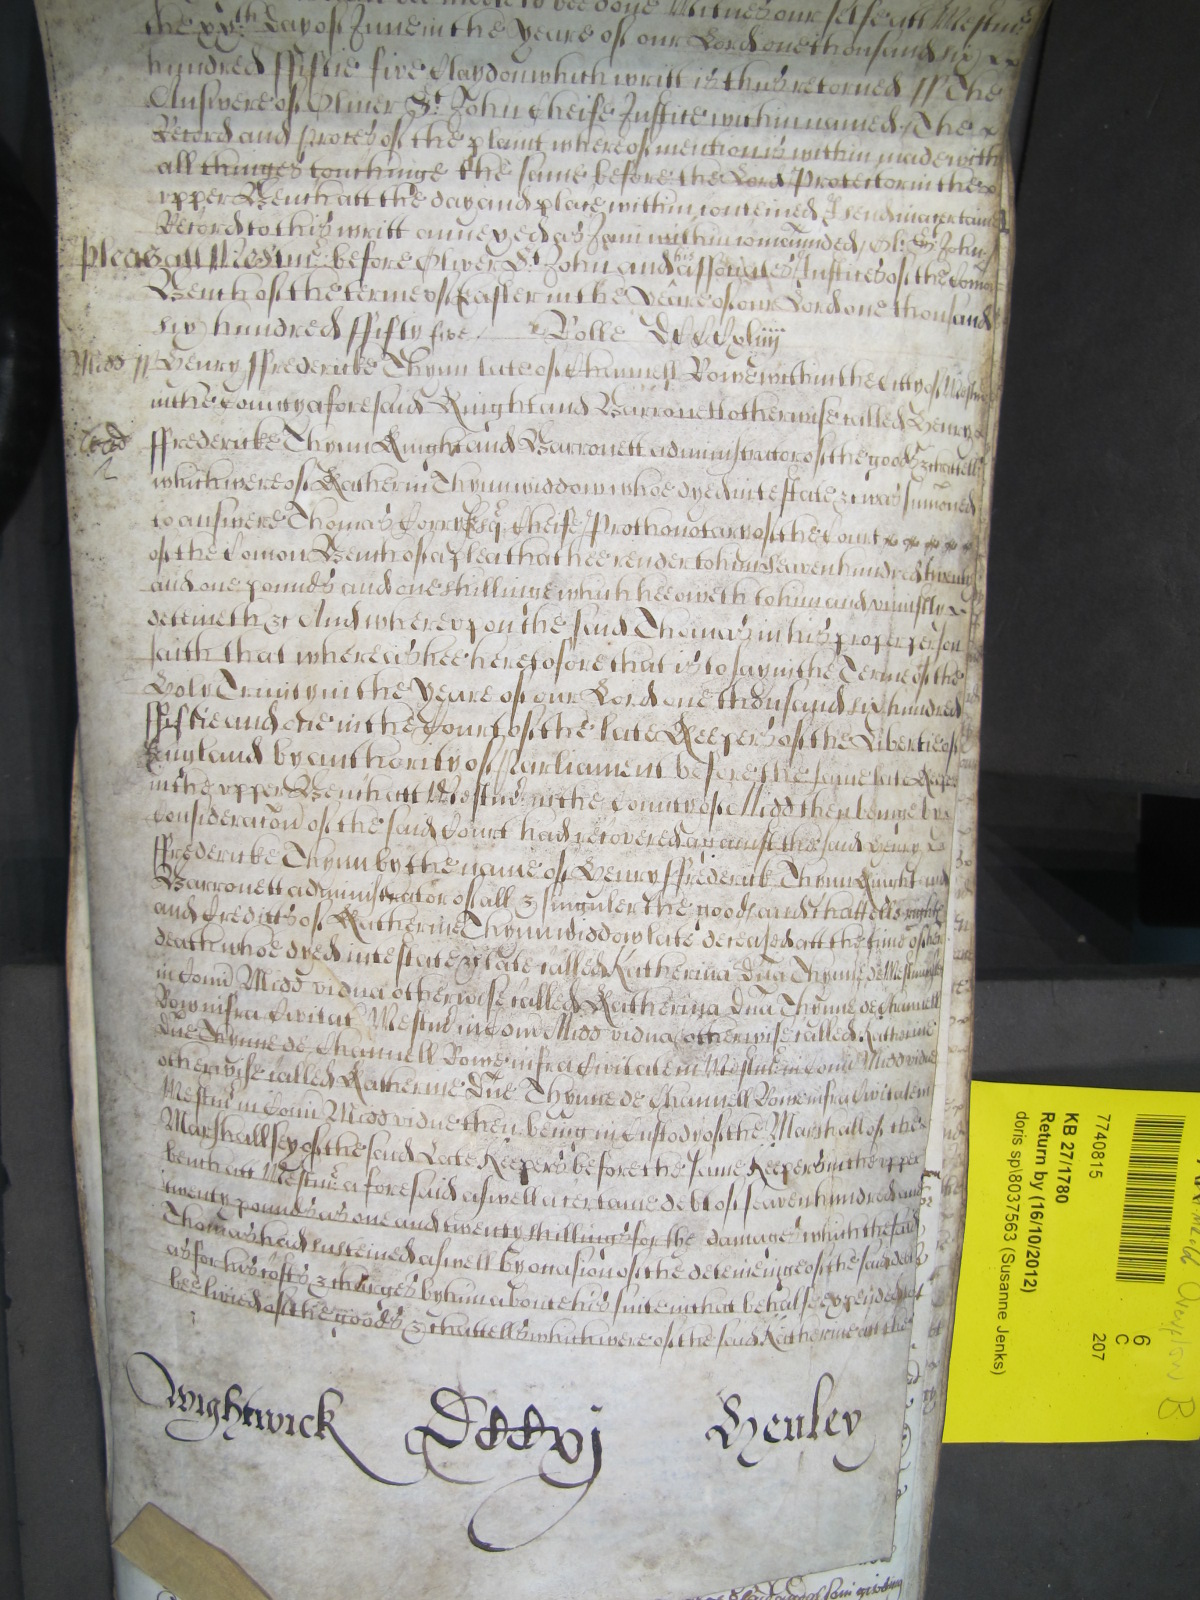 to bee done Witnes our selfe att Westmr
the xxth day of June in the yeare of our Lord one thousand six
hundred ffiftie five Claydon which writt is thus retorned ss The
Answere of Oliver St John Cheife Justice within named / The
Record and proces of the plaint whereof mention is within made with
all thinges touchinge the same before the Lord Protector in the
upper Bench att the day and place within conteined I send in a certaine
Record to this writt annexed as I am within comaunded / Ol: St John /
Pleas att Westmr before Oliver St John and his associates Justices of the Comon
Bench of the terme of Easter in the yeare of our Lord one thousand
six hundred ffifty five / Rolle
Midd ss Henry ffredericke Thynn late of Channell Rowe within the Citty of Westmr
in the County aforesaid Knight and Barronett otherwise called Henry
ffredericke Thynn Knight and Barronett administrator of the goods & chattells
which were of Katherin Thynn widdow whoe dyed intestate &c was sumoned
to answere Thomas Corry Esqr Cheife Prothonotary of the Court
of the Comon Bench of a plea that hee render to him seaven hundred twenty
and one pounds and one shillinge which hee oweth to him and uniustly
deteineth &c And whereupon the said Thomas in his proper person
saith that whereas hee heretofore that is to say in the Terme of the
Holy Trinity in the yeare of our Lord one thousand six hundred
ffiftie and one in the Court of the late Keepers of the Liberties of
England by authority of Parliament before the same late Keepers
in the upper Bench att Westmr in the County of Midd then beinge by
consideracon of the said Court had recovered against the said Henry
ffredericke Thynn by the name of Henry ffrederick Thynn Knight and
Barronett administrator of all & singuler the goods and chattells rights
and creditts of Katherine Thynn widdow late deceased att the time of her
death whoe dyed intestate &c late called Katherina Dna Thynne de Westm
in Com Midd vidua otherwise called Katherina Dna Thynne de Channell
Row infra Civitat Westm in Com Midd vidua otherwise called Katherine
Dne Thynne de Channell Rowe infra Civitatem Westm in Com Midd vidue
otherwise called Katherine Dne Thynne de Channell Rowe infra Civitatem
Westm in Com Midd vidue then being in Custody of the Marshall of the
Marshallsey of the said Late Keepers before the same Keepers in the upper
bench att Westmr aforesaid aswell a certaine debt of seaven hundred and
twenty pounds as one and twenty shillings for the damages which the said
Thomas had susteined aswell by occasion of the deteininge of the said debt
as for his costs & charges by him about his suite in that behalfe expended to
bee levied of the goods & chattells which were of the said Katherine att the
Wightwick
Henley
7740815
KB 27/1780
Return by (16/10/2012)
doris sp\8037563 (Susanne Jenks)
6
C
207
B